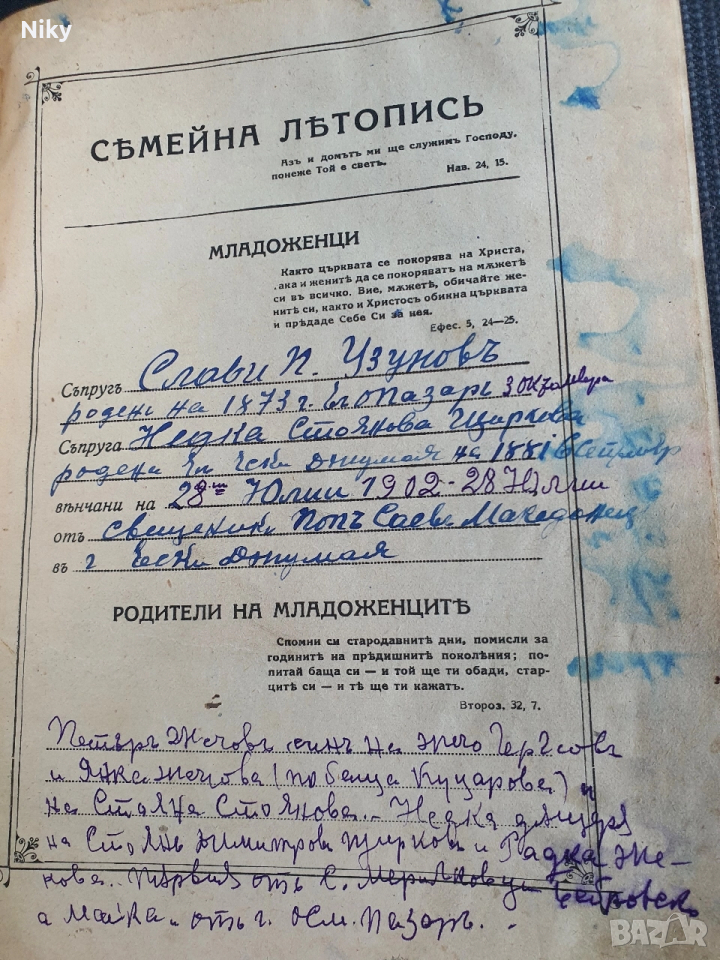 Niky
СѢМЕЙНА ЛѢТОПИСЬ
Азъ и домътъ ми ще служимъ Господу,
понеже Той е светъ.
Нав. 24, 15.
МЛАДОЖЕНЦИ
Както църквата се покорява на Христа,
ака и женитѣ да се покоряватъ на мѫжетѣ
си въ всичко. Вие, мѫжетѣ, обичайте же-
нитѣ си, както и Христосъ обикна църквата
и прѣдаде Себе Си за нея.
Ефес. 5, 24—25.
Съпругъ Слави П. Узуновъ
роденъ на 1873 г. Пазаръ 3 Октомври
Съпруга Недка Стоянова
родена Ески Джумая на 1881
вѣнчани на 28 Юлии 1902 - 28 Юлии
отъ свещеникъ Попъ Македонец
въ г Ески Джумая
РОДИТЕЛИ НА МЛАДОЖЕНЦИТѢ
Спомни си стародавнитѣ дни, помисли за
годинитѣ на прѣдишнитѣ поколѣния; по-
питай баща си — и той ще ти обади, стар-
цитѣ си — и тѣ ще ти кажатъ.
Второз. 32, 7.
Петъръ синъ на
и Яна (по баща Куцарова) и
на Стояна Стоянова. Недка дъщеря
на Стоянъ Димитровъ и Радка Же-
кова. Първия отъ С.
а майка отъ г. Осм. Пазаръ.
BAZAR